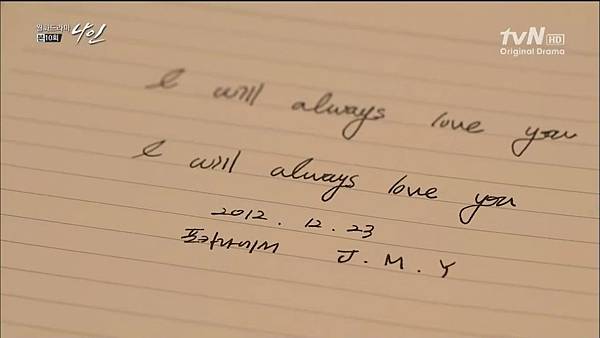 월화드라마 나인
본 10회
tvN HD
Original Drama
I will always love you
I will always love you
2012. 12. 23
포카라에서 J. M. Y